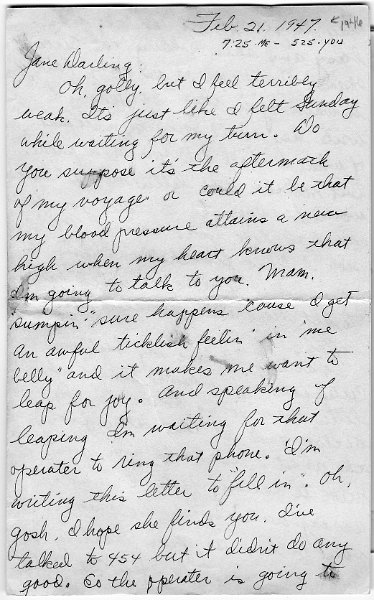 Feb. 21. 1947. 1946
7.25 me - 525. you
Jane Darling;
Oh, golly, but I feel terribly
weak. It's just like I felt Sunday
while waiting for my turn. Do
you suppose it's the aftermark
of my voyage or could it be that
my blood pressure attains a new
high when my heart knows that
I'm going to talk to you. Mam,
"sumpin" sure happens 'cause I get
an awful ticklish feelin' in "me
belly" and it makes me want to
leap for joy. And speaking of
leaping I'm waiting for that
operater to ring that phone. I'm
writing this letter to "fill in". Oh,
gosh, I hope she finds you. I've
talked to 454 but it didn't do any
good. So the operater is going to